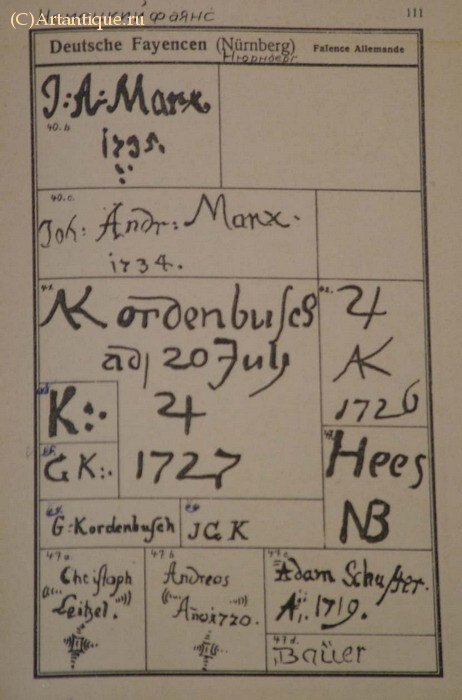 (C)Artantique.ru
Немецкий фаянс
111
Deutsche Fayencen (Nürnberg) Faïence Allemande
Нюрнберг
J:A:Marx.
40.b
1735.
40.c.
Joh: Andr: Marx.
1734.
41.
AK ordenbusch
ad 20 July
♃
1727
42.
♃
AK
1726
K:.
GK:.
Hees
NB
G:Kordenbusch
JGK
47a
Christoph
Leitzel.
47b
Andreas
Año 1720.
47c.
Adam Schuster.
A:. 1719.
47d.
Baüer